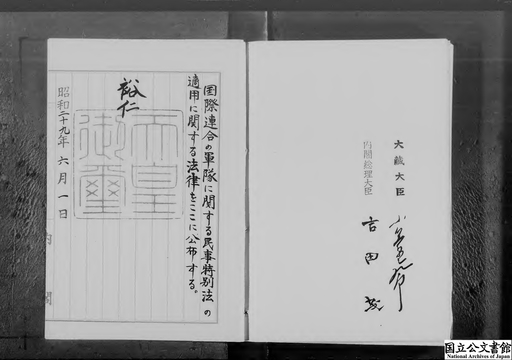 国際連合の軍隊に関する民事特別法の
適用に関する法律をここに公布する。
裕仁
天皇
御璽
昭和二十九年 六月 一日
内閣
大蔵大臣
内閣総理大臣
吉田茂
国立公文書館
National Archives of Japan